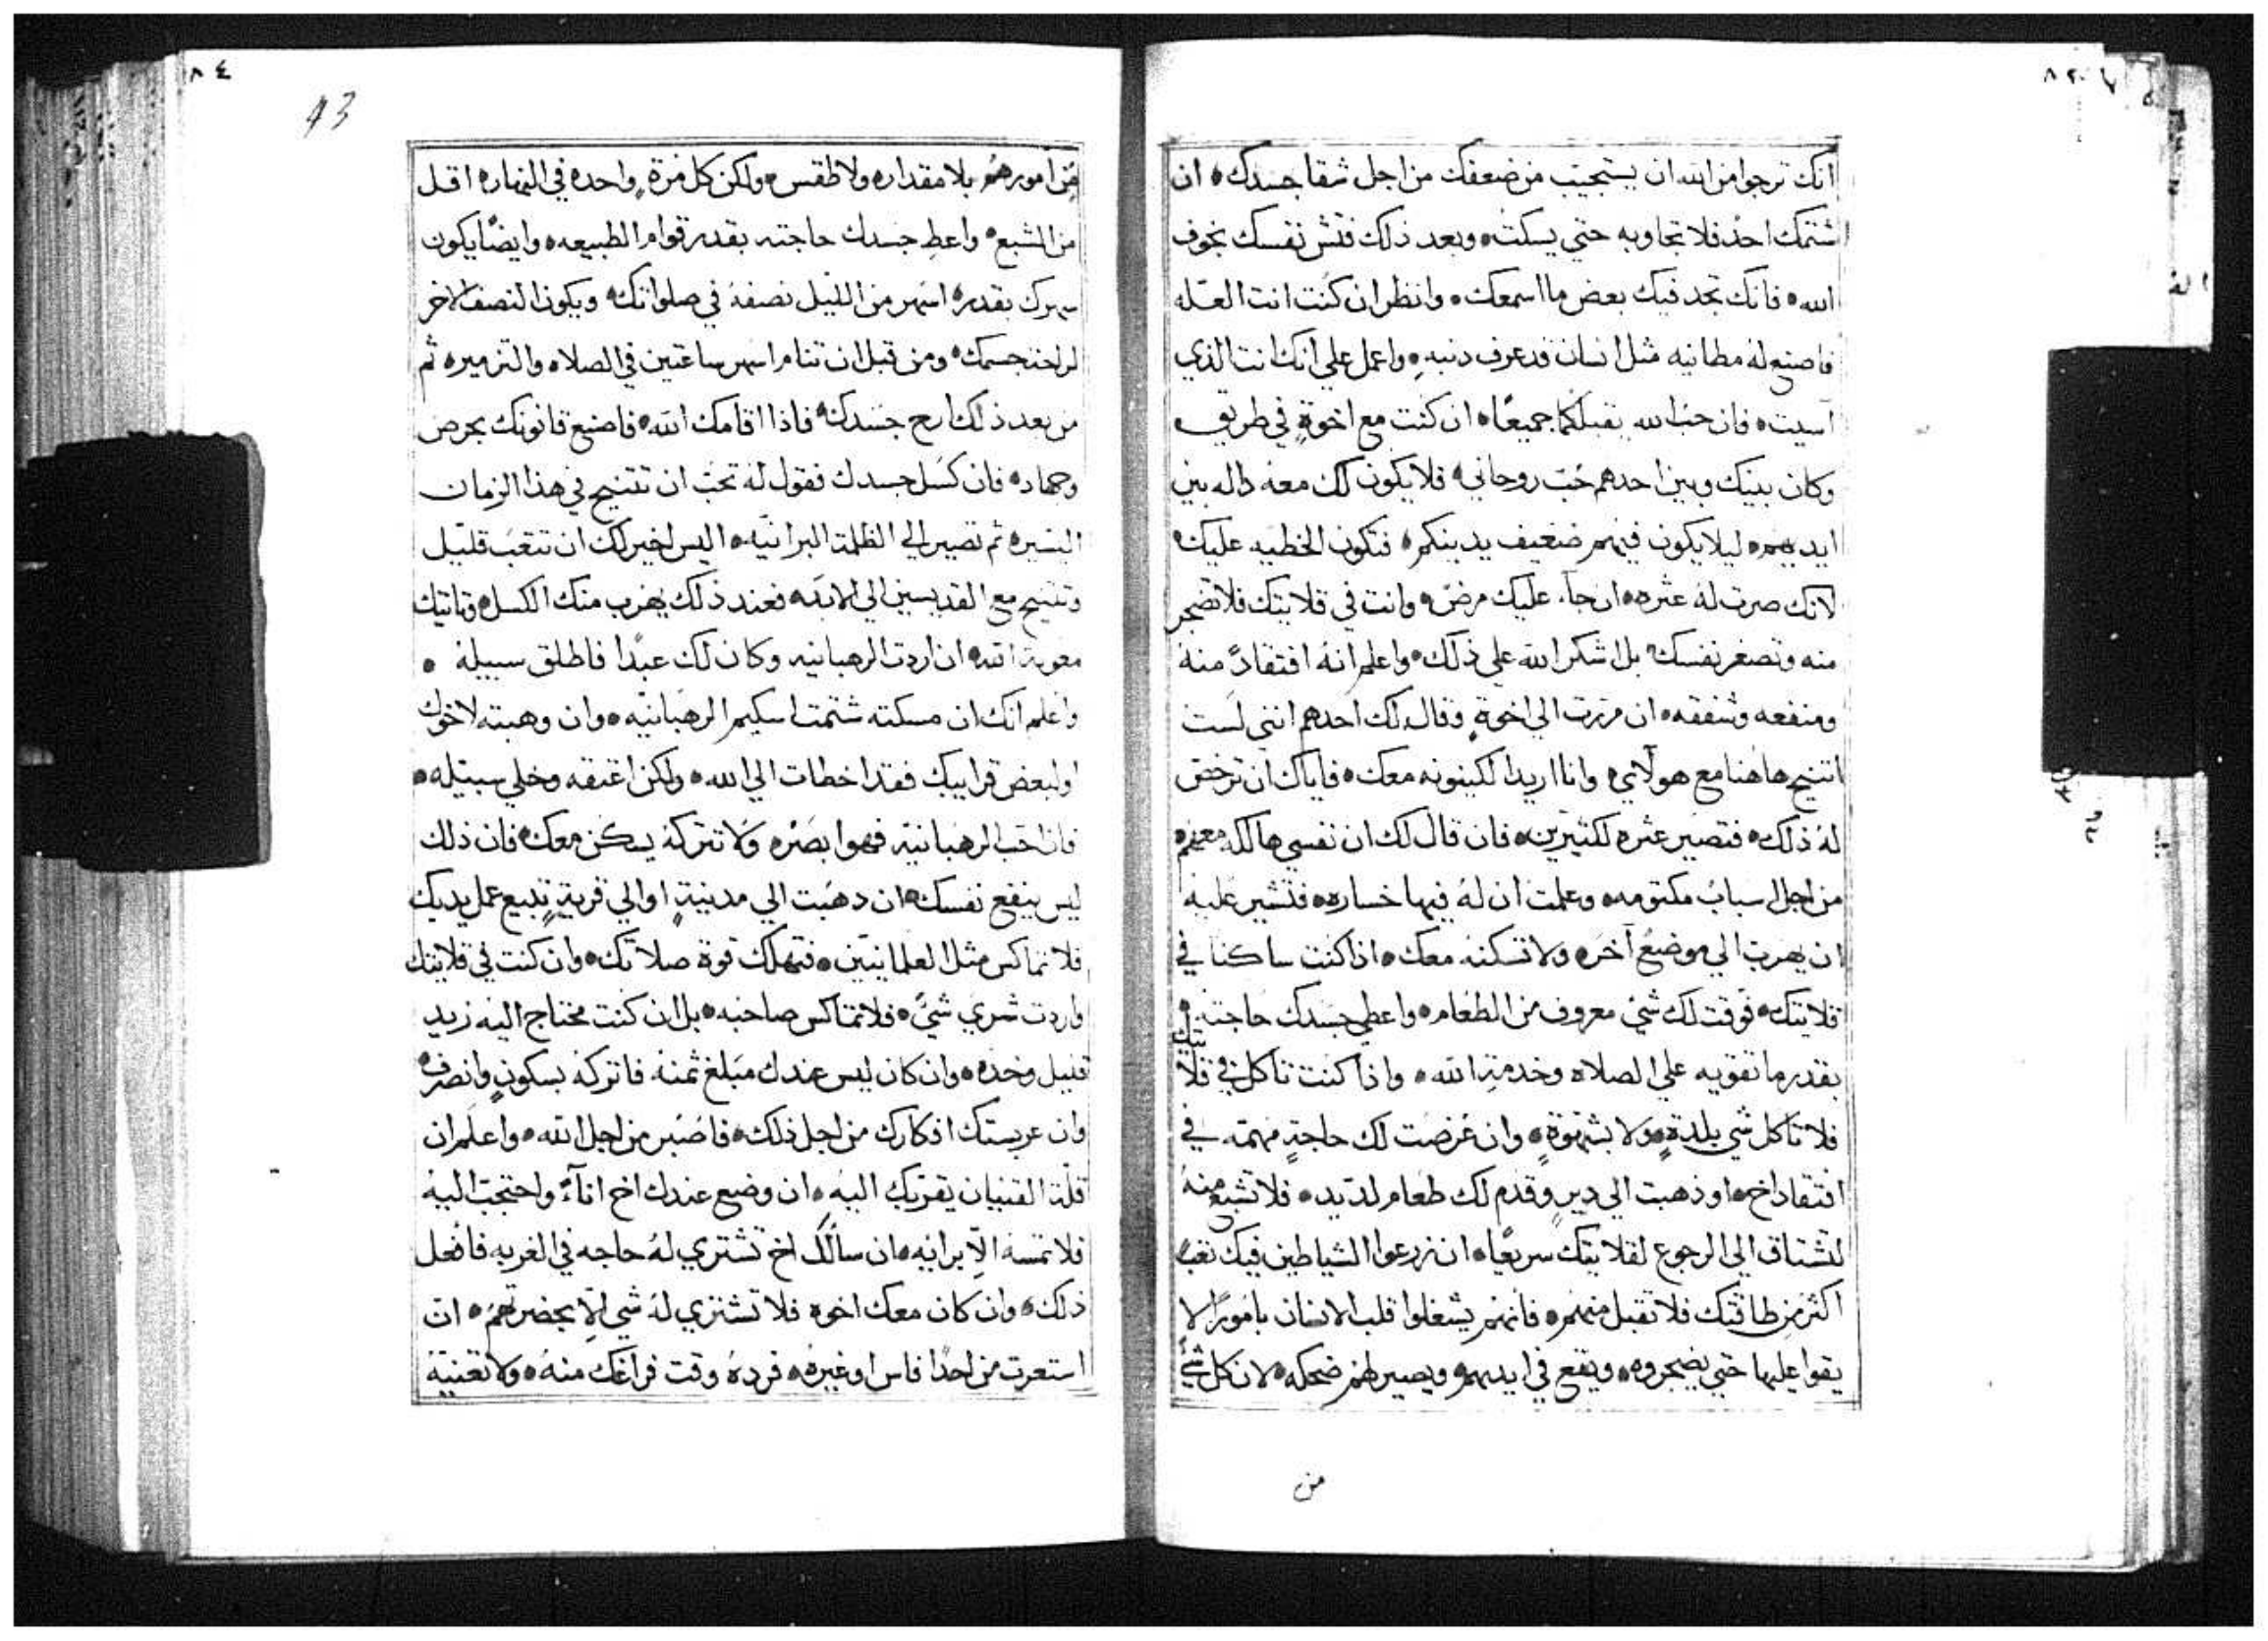 انك ترجوا من الله ان يستجيب من ضعفك من اجل شقا جسدك ه ان
شتمك احدٌ فلا تجاوبه حتي يسكت ه وبعد ذلك فتش نفسك بخوف
الله ه فانك تجد فيك بعض ما اسمعك ه وانظر ان كنت انت العله
فاصنع له مطانيه مثل انسان قد عرف دنبه ه واعمل علي انك انت الذي
آسيت ه فان حب الله يقبلكما جميعًا ه ان كنت مع اخوةٍ في طريق
وكان بينك وبين احدهم حب روحاني ه فلا يكون لك معه داله بين
ايديهم ه ليلا يكون فيهم ضعيف يدينكم ه فتكون الخطيه عليك ه
لانك صرت له عثره ه ان جآء عليك مرض ه وانت في قلايتك فلا تضجر
منه وتصغر نفسك ه بل اشكر الله علي ذلك ه واعلم انه افتقادً منه
ومنفعه وشفقه ه ان مررت الي اخوةٍ وقال لك احدهم انني لست
اتنيح هاهنا مع هولآي ه وانا اريد الكينونه معك ه فاياك ان ترخص
له ذلك ه فتصير عثره لكثيرين ه فان قال لك ان نفسي هالكه معهم ه
من اجل اسباب مكتومه ه وعلمت ان له فيها خساره ه فتشير عليه
ان يهرب الي موضع آخر ه ولا تسكنه معك ه اذا كنت ساكنا في
قلايتك ه فوقت لك شي معروف من الطعام ه واعطي جسدك حاجته ه
بقدر ما تقويه علي الصلاه وخدمة الله ه واذا كنت تاكل في قلايتك
فلا تاكل شي بلدةٍ ه ولا بشهوةٍ ه وان عرضت لك حاجةٍ مهمه في
افتقاد اخ ه او ذهبت الي ديرٍ وقدم لك طعام لديد ه فلا تشبع منه
لتشتاق الي الرجوع لقلايتك سريعًا ه ان زرعوا الشياطين فيك تعب
اكثر من طاقتك فلا تقبل منهم ه فانهم يشغلوا قلب الانسان بامورًا لا
يقوا عليها حتي يضجروه ه ويقع في ايديهم ه ويصير لهم ضحكه ه لان كل شي
من
٨٤
43
من امورهم بلا مقدار ه ولا طقس ه ولكن كل مرةٍ واحده في النهار ه اقل
من الشبع ه واعطِ جسدك حاجته بقدر قوام الطبيعه ه وايضًا يكون
سهرك بقدر ه اسهر من الليل نصفه في صلواتك ه ويكون النصف الاخر
لراحت جسمك ه ومن قبل ان تنام اسهر ساعتين في الصلاه والتزمير ه ثم
من بعد ذلك ارح جسدك ه فاذا اقامك الله ه فاصنع قانونك بحرص
وجهاد ه فان كسل جسدك فقول له تحب ان تتنيح في هذا الزمان
اليسير ه ثم تصير الي الظلمة البرانيه ه اليس اخير لك ان تتعب قليل
وتتنيح مع القديسين الي الابد ه فعند ذلك يهرب منك الكسل ه وتاتيك
معونة الله ه ان اردت الرهبانيه وكان لك عبدًا فاطلق سبيله ه
واعلم انك ان مسكته شتمت اسكيم الرهبانيه ه وان وهبته لاخوك
او لبعض قرايبك فقد اخطات الي الله ه ولكن اعتقه وخلي سبيله ه
فان احب الرهبانية فهوا بصره ولا تتركه يسكن معك ه فان ذلك
ليس ينفع نفسك ه ان دهبت الي مدينةٍ او الي قريةٍ تبيع عمل يديك
فلا تماكس مثل العلمانيين ه فتهلك قوة صلاتك ه وان كنت في قلايتك
واردت شري شيء ه فلا تماكس صاحبه ه بل ان كنت محتاج اليه زيد
قليل وخده ه وان كان ليس عندك مبلغ ثمنه فاتركه بسكونٍ وانصرف ه
وان عربستك افكارك من اجل ذلك ه فاصبر من اجل الله ه واعلم ان
قلة القنيان يقربك اليه ه ان وضع عندك اخ انآءً واحتجت اليه
فلا تمسه الا برايه ه ان سالك اخ تشتري له حاجه في الغربه فافعل
ذلك ه وان كان معك اخوه فلا تشتري له شي الا بحضرتهم ه ان
استعرت من احدًا فاس او غيره ه فرده وقت فراغك منه ه ولا تعنيه